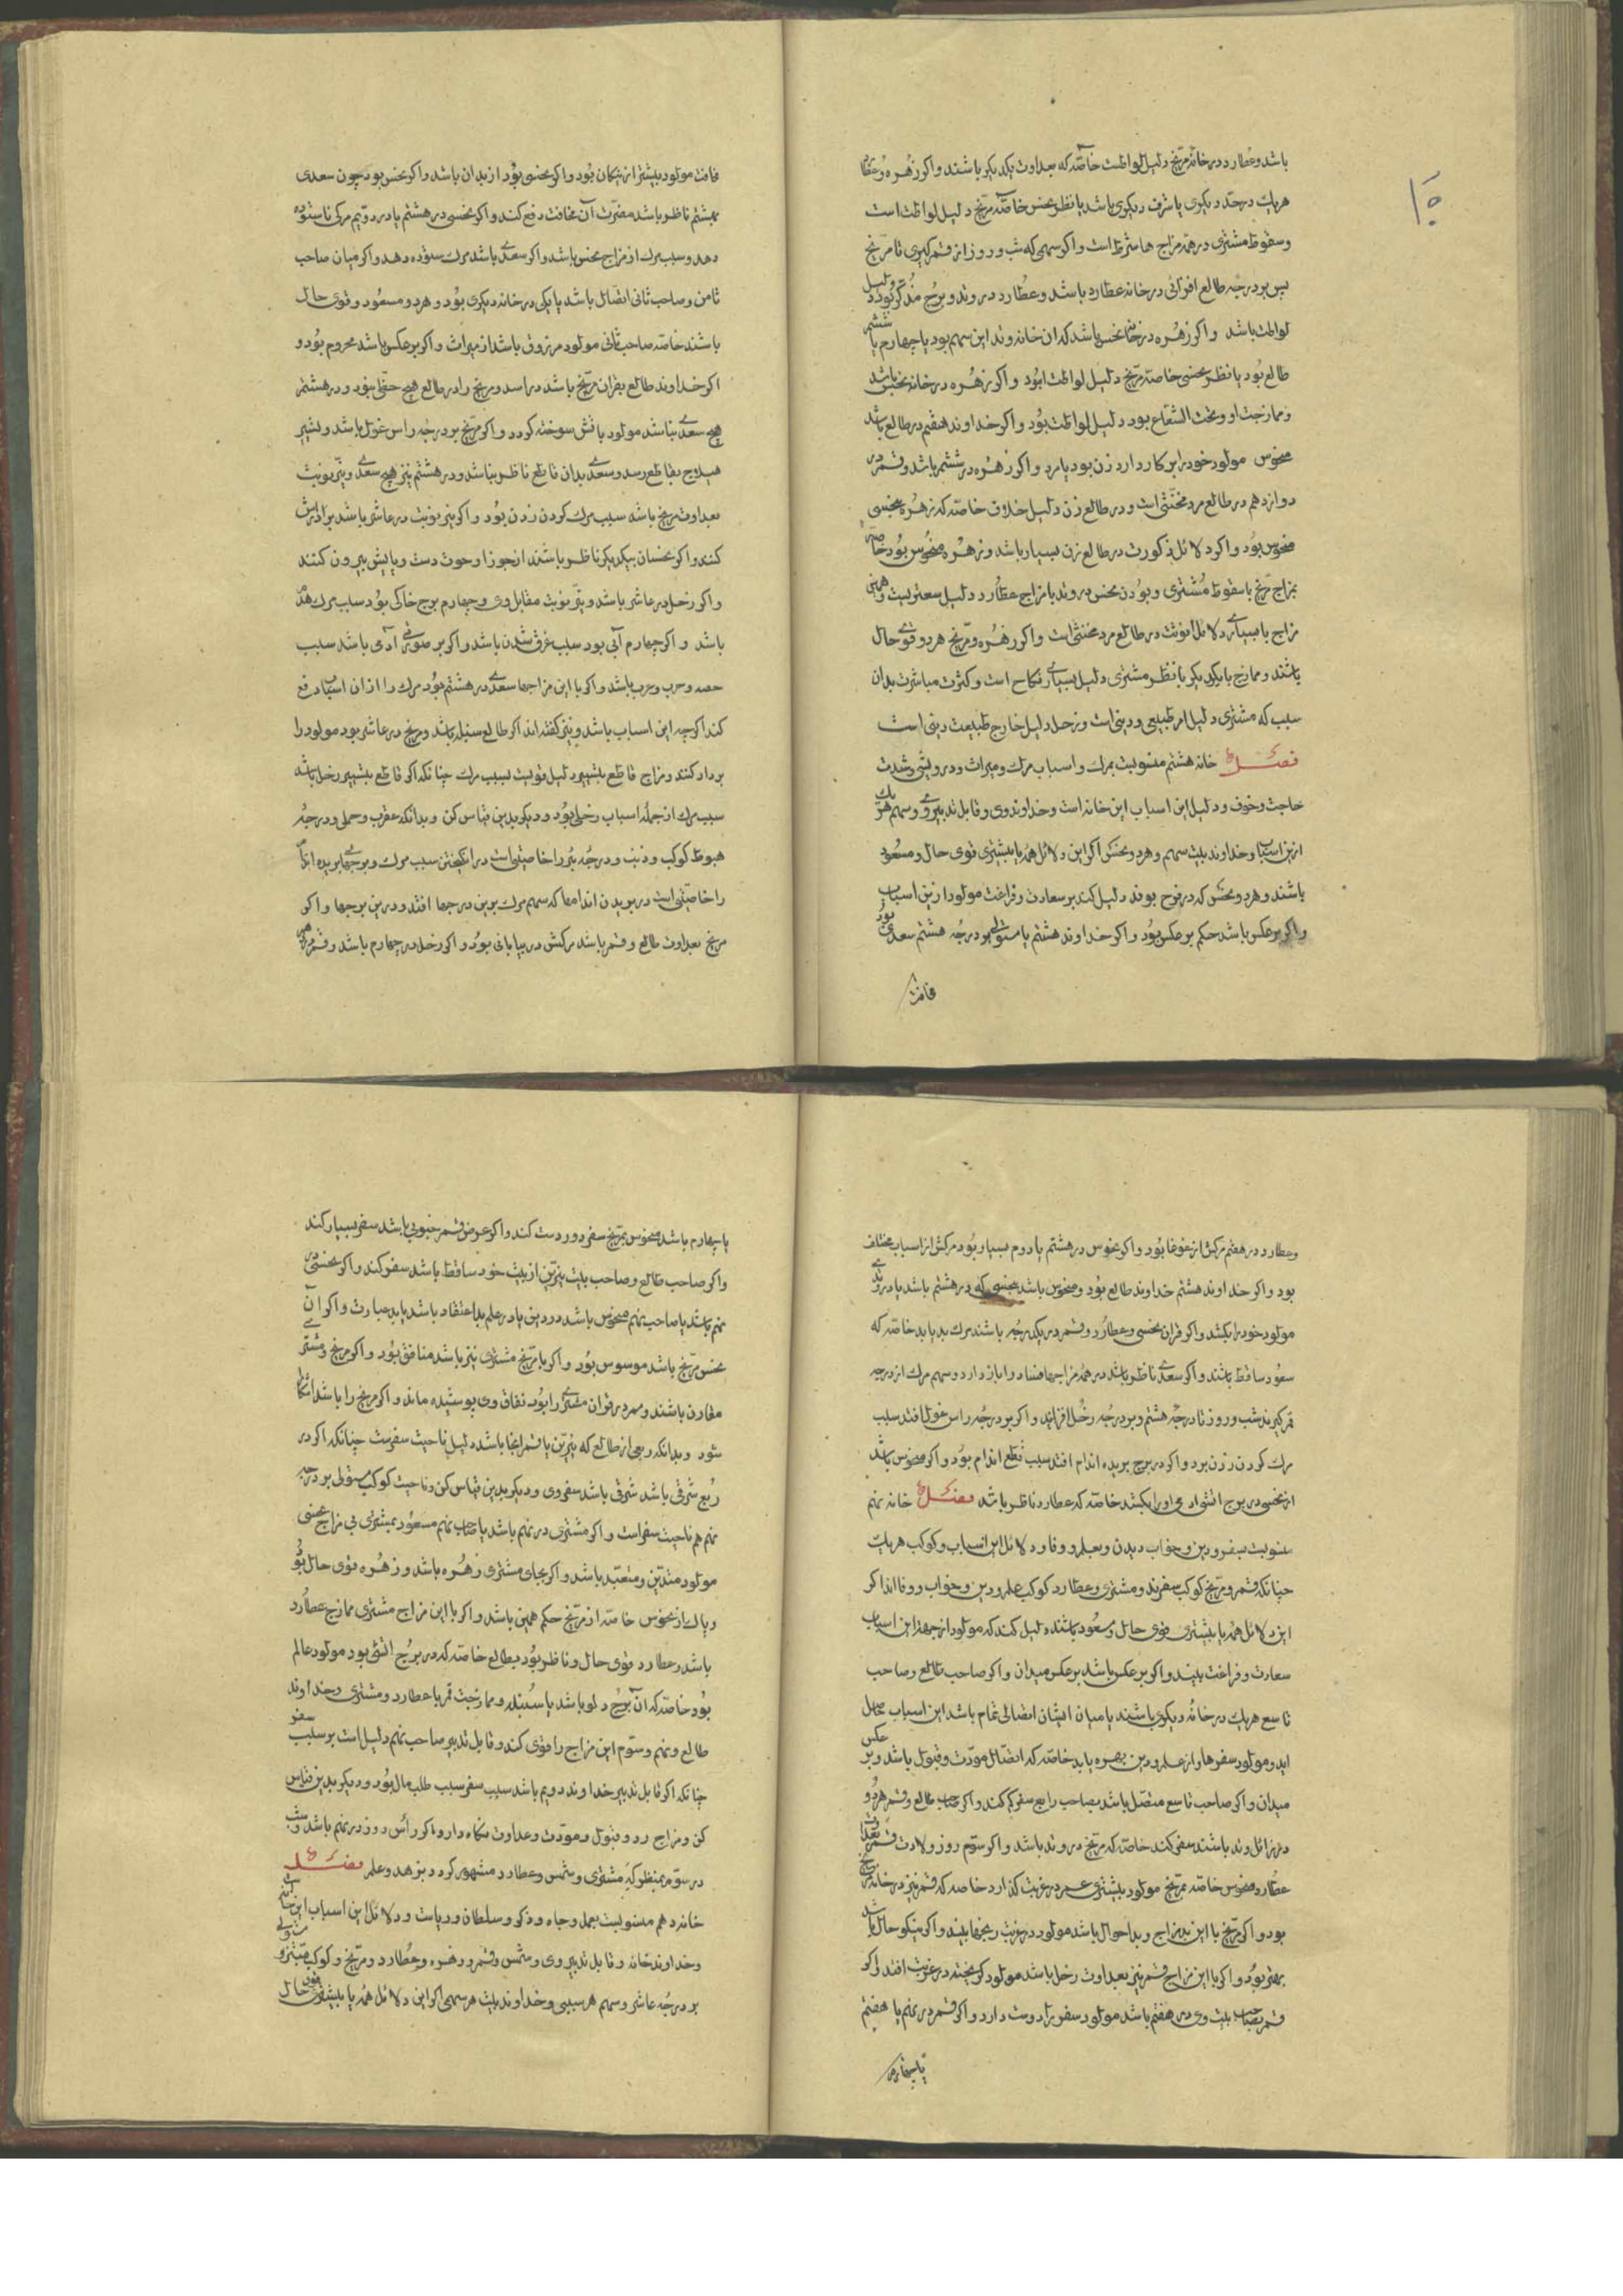 باشد و عطارد در خانه مریخ دلیل لواطت خاصه که بعداوت یکدیکر باشند و اکر زهره و عطارد
هریک در حد دیکری یا شرف دیکری باشد یا نظر نحس خاصه مریخ دلیل لواطت است
و سقوط مشتری در همه مزاج ها شرط است و اکر سهمی که شب و روز از قمر کیری تا مریخ
پس بر درجه طالع افزائی در خانه عطارد باشد و عطارد در وتد و برج مذکر بود دلیل
لواطت باشد و اکر زهره در خانه نحس باشد که ان خانه وتد این سهم بود یا چهارم یا ششم
طالع بود یا نظر نحسی خاصه مریخ دلیل لواطت بود و اکر زهره در خانه نحس باشد
و ممازجت او و تحت الشعاع بود دلیل لواطت بود و اکر خداوند هفتم در طالع باشد
منحوس مولود خود را بر کار دارد زن بود یا مرد و اکر زهره در ششم باشد و قمر در
دوازدهم در طالع مرد مخنثی است و در طالع زن دلیل خلاف خاصه که زهره بنحسی
منحوس بود و اکر دلائل ذکورت در طالع زن بسیار باشد و زهره منحوس بود خاصه
بمزاج مریخ با سقوط مشتری و بودن نحس در وتد با مزاج عطارد دلیل سعتریست و همین
مزاج با بسیاری دلائل انوثت در طالع مرد مخنثی است و اکر زهره و مریخ هر دو قوی حال
باشند و ممازج با یکدیکر با نظر مشتری دلیل بسیاری نکاح است و کثرت مباشرت بدان
سبب که مشتری دلیل امر طبیعی و دینی است و زحل دلیل خارج طبیعت دینی است
فصل خانه هشتم منسوبست بمرک و اسباب مرک و میراث و درویشی و شدت
حاجت و خوف و دلیل این اسباب این خانه است و خداوند وی و قابل تدبیر وی و سهم هر یک
ازین اسباب و خداوند بیت سهم و هر دو نحس اکر این دلائل همه یا بیشتری قوی حال و مسعود
باشند و هر دو نحس که در فرح بوند دلیل کند بر سعادت و فراغت مولود ازین اسباب
و اکر برعکس باشد حکم برعکس بود و اکر خداوند هشتم یا مستولی بر درجه هشتم سعدی بود
فامت
فامت مولود بیشتر از نیکان بود و اکر نحسی بود از بدان باشد و اکر نحس بود چون سعدی
بهشتم ناظر باشد مضرت آن مخافت دفع کند و اکر نحسی در هشتم یا در دویم مرکی ناستوده
دهد و سبب مرک از مزاج نحس باشد و اکر سعدی باشد مرک ستوده دهد و اکر میان صاحب
ثامن و صاحب ثانی اتصال باشد یا یکی در خانه دیکری بود و هر دو مسعود و قوی حال
باشند خاصه صاحب ثانی مولود مرزوق باشد از میراث و اکر برعکس باشد محروم بود و
اکر خداوند طالع بقران مریخ باشد در اسد و مریخ را در طالع هیچ حظی نبود و در هشتم
هیچ سعدی نباشد مولود باتش سوخته کردد و اکر مریخ بر درجه راس غول باشد و تسییر
هیلاج بقاطع رسد و سعدی بدان قاطع ناظر نباشد و در هشتم نیز هیچ سعدی و نیر نوبت
بعداوت مریخ باشد سبب مرک کردن زدن بود و اکر نیر نوبت در عاشر باشد بر دارش
کنند و اکر نحسان بیکدیکر ناظر باشند از جوزا و حوت دست و پایش بیرون کنند
و اکر زحل در عاشر باشد و نیر نوبت مقابل وی و چهارم برج خاکی بود سبب مرک هدم
باشد و اکر چهارم آبی بود سبب غرق شدن باشد و اکر بر صورتی آدمی باشد سبب
حصه و حرب و ضرب باشد و اکر با این مزاجها سعدی در هشتم بود مرک را از ان اسباب دفع
کند اکرچه این اسباب باشد و نیز کفته اند اکر طالع سنبله باشد و مریخ در عاشر بود مولود را
بر دار کنند و مزاج قاطع بتسییر دلیل قویست بسبب مرک چنانکه اکر قاطع بتسییر زحل باشد
سبب مرک از جمله اسباب زحلی بود و دیکر بدین قیاس کن و بدانکه عقرب و حمل و درجه
هبوط کوکب و ذنب و درجه بئر را خاصیتی است در انکیختن سبب مرک و برجهای بریده اندام
را خاصیتی است در بریدن اندامها که سهم مرک بدین درجها افتد و درین برجها و اکر
مریخ بعداوت طالع و قمر باشد مرکش در بیابانی بود و اکر زحل در چهارم باشد و قمر در
و عطارد در هفتم مرکش از غوغا بود و اکر نحوس در هشتم یا دوم بسیار بود مرکش از اسباب مختلف
بود و اکر خداوند هشتم خداوند طالع بود و منحوس باشد بنحسی که در هشتم باشد یا در وتدی
مولود خود را بکشد و اکر قران نحسی و عطارد و قمر در یکدرجه باشند مرک بد یابد خاصه که
سعود ساقط باشند و اکر سعدی ناظر باشد در همه مزاجها فساد را باز دارد و سهم مرک از درجه
قمر کیرند شب و روز تا درجه هشتم و بر درجه زحل افزایند و اکر بر درجه راس غول افتد سبب
مرک کردن زدن بود و اکر در برج بریده اندام افتد سبب قطع اندام بود و اکر منحوس باشد
از نحسی در برج اتشی ادمی او را بکشد خاصه که عطارد ناظر باشد فصل خانه نهم
منسوبست بسفر و دین و خواب دیدن و بعلم و وفا و دلائل این اسباب و کوکب هر یک
چنانکه قمر و مریخ کوکب سفرند و مشتری و عطارد کوکب علم و دین و خواب و وفا اند اکر
این دلائل همه یا بیشتری قوی حال و مسعود باشند دلیل کند که مولود از جهة این اسباب
سعادت و فراغت بیند و اکر برعکس باشد برعکس میدان و اکر صاحب طالع و صاحب
تاسع هر یک در خانه دیکری باشند یا میان ایشان اتصالی تمام باشد این اسباب بحال
اید و مولود سفرها و از علم و دین بهره یابد خاصه که اتصال مودت و قبول باشد و بر عکس
میدان و اکر صاحب تاسع متصل باشد بصاحب رابع سفر کم کند و اکر صاحب طالع و قمر هر دو
در زائل وتد باشند سفر کند خاصه که مریخ در وتد باشد و اکر سوم روز ولادت قمر بعداوت
عطارد منحوس خاصه بمریخ مولود بیشتری عمر در غربت کذارد خاصه که قمر نیز در خانه مریخ
بود و اکر مریخ با این مزاج و بد احوال باشد مولود در غربت رنجها بیند و اکر نیکو حال باشد
بهتر بود و اکر با این مزاج قمر نیز بعداوت زحل باشد مولود کریخته در غربت افتد و اکر
قمر بصاحب بیت وی در هفتم باشد مولود سفر را دوست دارد و اکر قمر در نهم یا هفتم
یا چهارم
یا چهارم باشد منحوس بمریخ سفر دور دست کند و اکر عرض قمر جنوبی باشد سفر بسیار کند
و اکر صاحب طالع و صاحب بیت نیرین از بیت خود ساقط باشد سفر کند و اکر نحسی در
نهم باشد یا صاحب نهم منحوس باشد در دین یا در علم بد اعتقاد باشد یا بد عبارت و اکر آن
نحس مریخ باشد موسوس بود و اکر با مریخ مشتری نیز باشد منافق بود و اکر مریخ و مشتری
مقارن باشند و سهم در قران مشتری را بود نفاق وی پوشیده ماند و اکر مریخ را باشد اشکارا
شود و بدانکه ربعی از طالع که نیرین یا قمر انجا باشد دلیل ناحیت سفرست چنانکه اکر در
ربع شرقی باشد شرقی باشد سفر وی و دیکر بدین قیاس کن و ناحیت کوکب مستولی بر درجه
نهم هم ناحیت سفر است و اکر مشتری در نهم باشد یا صاحب نهم مسعود بمشتری بی مزاج نحسی
مولود متدین و متعبد باشد و اکر بجای مشتری زهره باشد و زهره قوی حال بود
و پاک از نحوس خاصه از مریخ حکم همین باشد و اکر با این مزاج مشتری ممازج عطارد
باشد و عطارد قوی حال و ناظر بود بطالع خاصه که در برج انثی بود مولود عالم
بود خاصه که آن برج دلو باشد یا سنبله و ممازجت قمر با عطارد و مشتری و خداوند
طالع و نهم و سوم این مزاج را قوی کند و قابل تدبیر صاحب نهم دلیل است بر سبب سفر
چنانکه اکر قابل تدبیر خداوند دویم باشد سبب سفر سبب طلب مال بود و دیکر بدین قیاس
کن و مزاج رد و قبول و مودت و عداوت نکاه دار و اکر رأس روز در نهم باشد و شب
در سوم بنظر که مشتری و شمس و عطارد مشهور کردد بزهد و علم فصل
خانه دهم منسوبست بعمل و جاه و ذکر و سلطان و ریاست و دلائل این اسباب این خانه است
و خداوند خانه و قابل تدبیر وی و شمس و قمر و زهره و عطارد و مریخ و کوکب مبتز و مستولی
بر درجه عاشر و سهم هر سببی و خداوند بیت هر سهمی اکر این دلائل همه یا بیشتری قوی حال